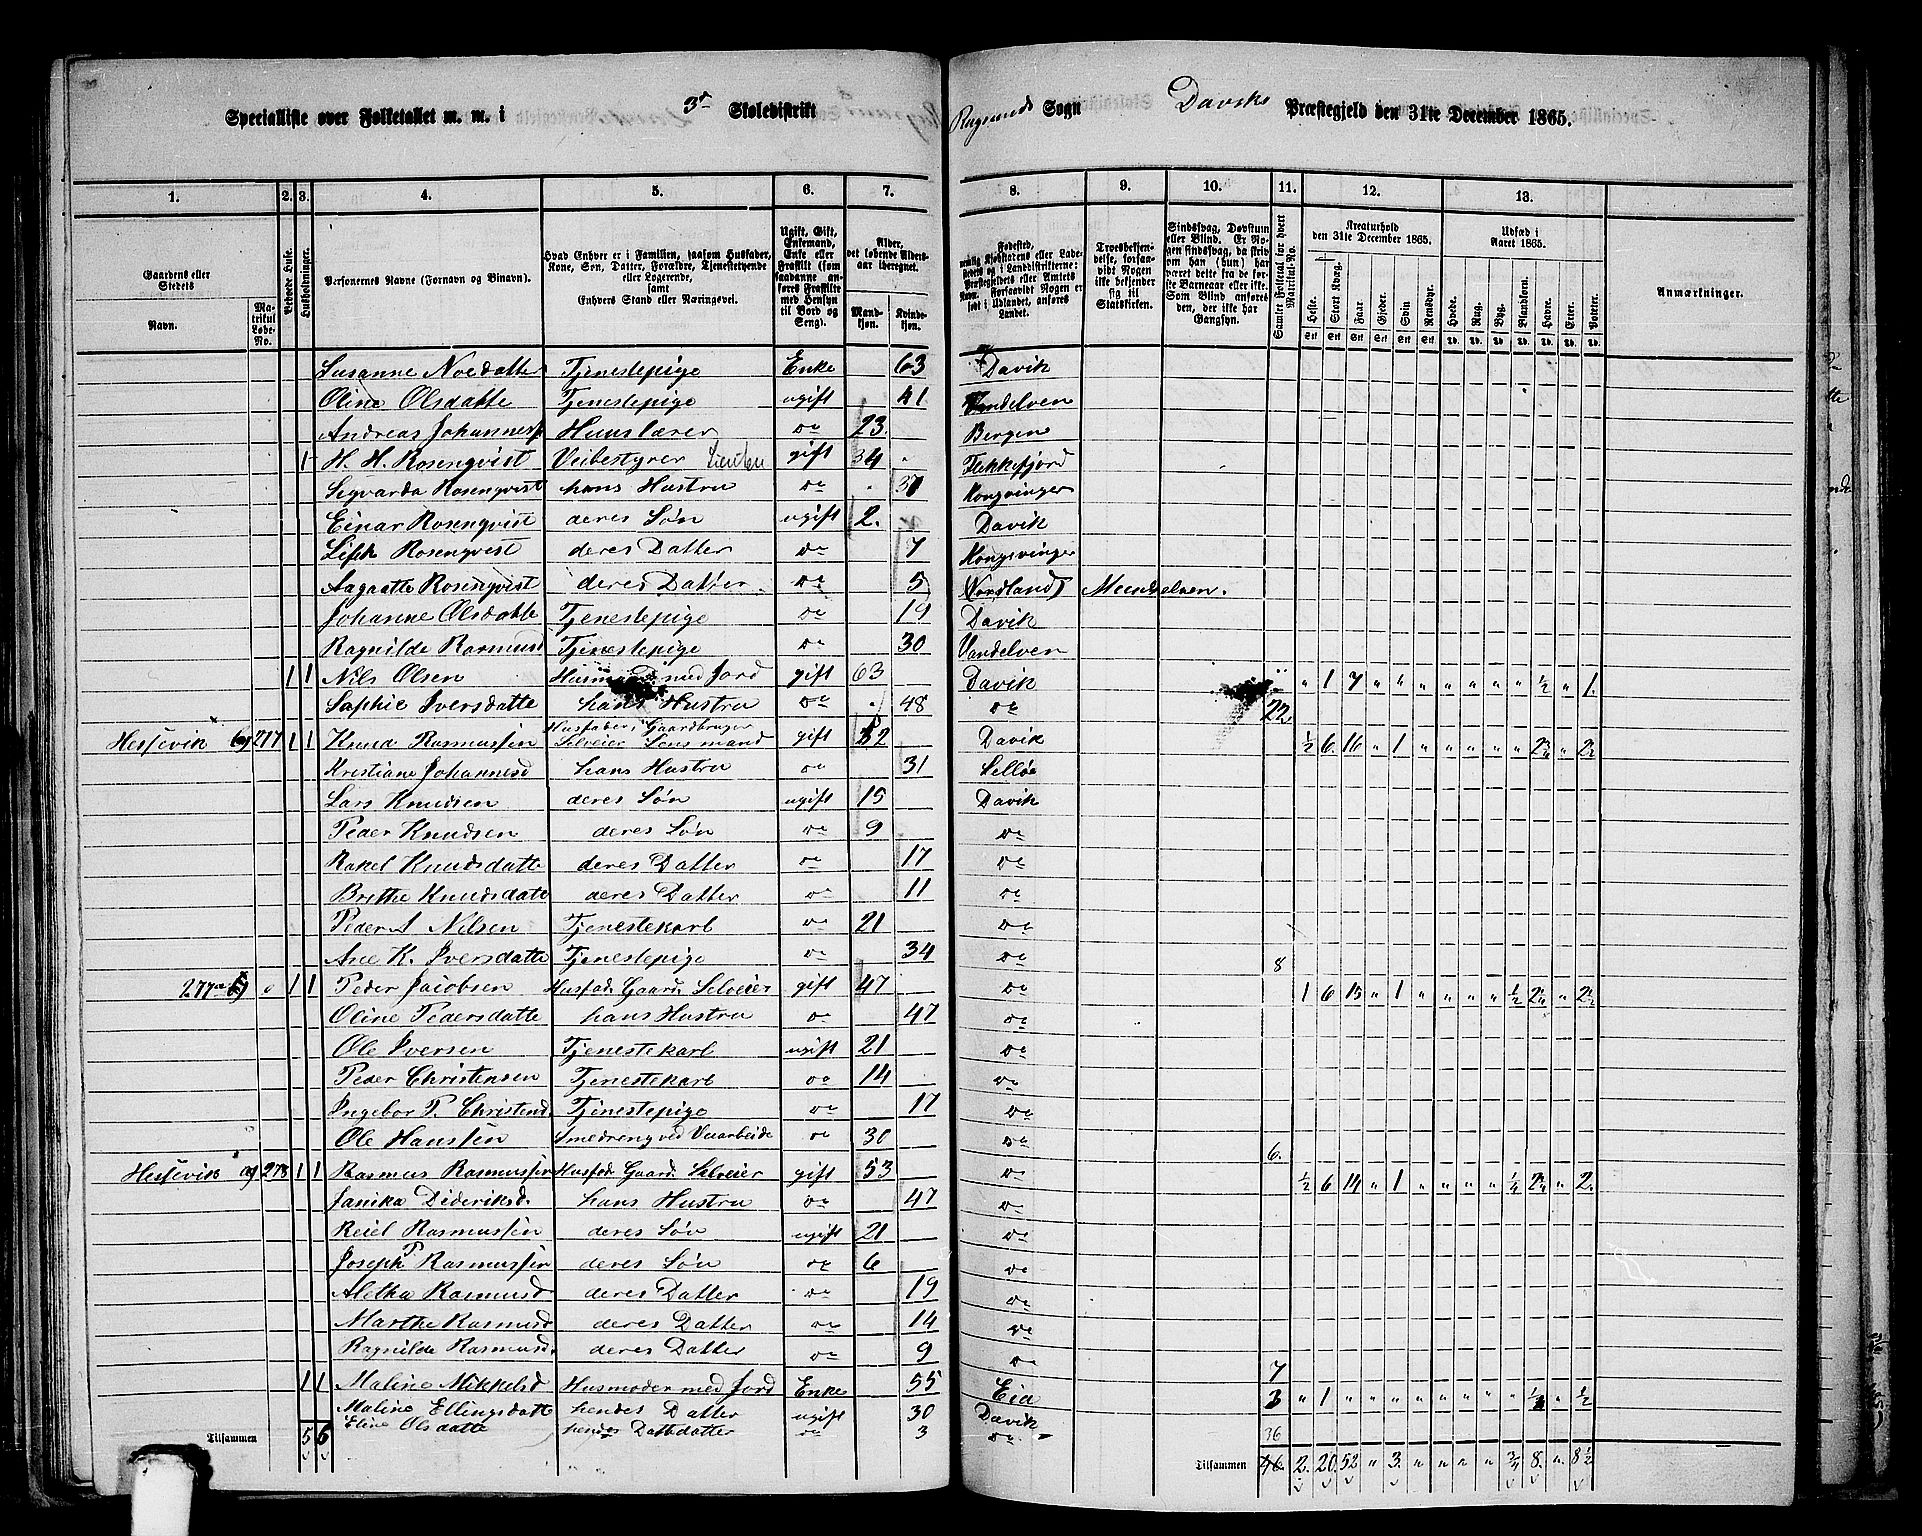 Specialliste over Folketallet m. m. i 3d Skoledistrikt Sogn Davik Præstegjeld den 31te December 1865.
1. 2. 3. 4. 5. 6. 7. 8. 9. 10. 11. 12. 13.
Gaardens eller Stedets Navn. Matrikul Løbe-No. Beboede Huse. Husholdninger. Personernes Navne (Fornavn og Binavn). Hvad Enhver er i Familien, saasom Husfader, Kone, Søn, Datter, Forældre, Tjenestetyende eller Logerende, samt Enhvers Stand eller Næringsvei. Alder, det løbende Aldersaar iberegnet. Mandkjøn. Kvindekjøn.
Kreaturhold den 31te December 1865. Udsæd i Aaret 1865. Anmærkninger.
Heste. Stort Kvæg. Faar. Gjeder. Svin. Rensdyr. Hvede. Rug. Byg. Blandkorn. Havre. Erter. Poteter.
Susanne Noedatter Tjenestepige Enke 63 Davik
Oline Olsdatte Tjenestepige ugift 41 Vandelven
Andreas Johanness Huuslærer do 23. Bergen
1 H. H. Rosenqvist Veibestyrer gift 34 Flekkefjord
Sigvarda Rosenqvist hans Hustru do 37 Kongvinger
Einar Rosenqvist deres Søn ugift 2. Davik
Rosenqvist deres Datter do 7 Kongsvinger
Aagaatte Rosenqvist deres Datter do 5 (Nordland)
Johanne Olsdatte Tjenestepige do 19 Davik
Ragnilde Rasmusd Tjenestepige do 30 Vandelven
1 1 Nils Olsen Husmand med Jord gift 63 Davik " 1 7 " " " " " " " ½ " 1.
Saphie Iversdatte hans Hustru do 48 do 22
Hessevik 217 1 1 Knud Rasmussen Husfader, Gaardbruger Selveier Lensmand gift 52 Davik ½ 6. 16 " 1 " " " " " 2¾ " 2
Kristiane Johannesd hans Hustru do 31 Selløe
Lars Knudsen deres Søn ugift 15 Davik
Peder Knudsen deres Søn do 9 do
Rakel Knudsdatte deres Datter do 17 do
Brithe Knudsdatt deres Datter do 11 do
Peder A Nilsen Tjenestekarl do 21 do
Ane K. Iversdatte Tjenestepige do 34 do 8
1 1 Peder Jacobsen Husfad. Gaard. Selveier gift 47 do 1 6 15 " 1 " " " " ½ 2¼ " 2½
Oline Pedersdatte hans Hustru do 47 do
Ole Iversen Tjenestekarl ugift 21 do
Peder Christensen Tjenestekarl do 14 do
Ingebor P. Christend. Tjenestepige do 17 do
Ole Hanssen Smedreng ved Veiarbeide do 30 do 6.
Hessevik 273 1 1 Rasmus Rasmussen Husfad. Gaard. Selveier gift 53 do ½ 6 14 " 1 " " " " ¼ 2¼ " 2.
Janika Dideriksd. hans Hustru do 47 do
Reiel Rasmussen deres Søn ugift 21 do
Joseph P. Rasmussen deres Søn do 6 do
Aletha Rasmusd deres Datter do 19 do
Marthe Rasmusd deres Datter do 14 do
Ragnilde Rasmusd. deres Datter do 9 do 7
1 1 Maline Mikkelsd Husmoder med Jord Enke 55 Eid 3 " 1 " " " " " " " " ½
Maline Ellingsdatte hendes Datter ugift 30 Davik
Eline Olsdatte hendes Datdatter do 3 do 36
Tilsammen 5 6 Tilsammen 46. 2. 20. 52 " 3. " " " " ¾ 8. " 8½